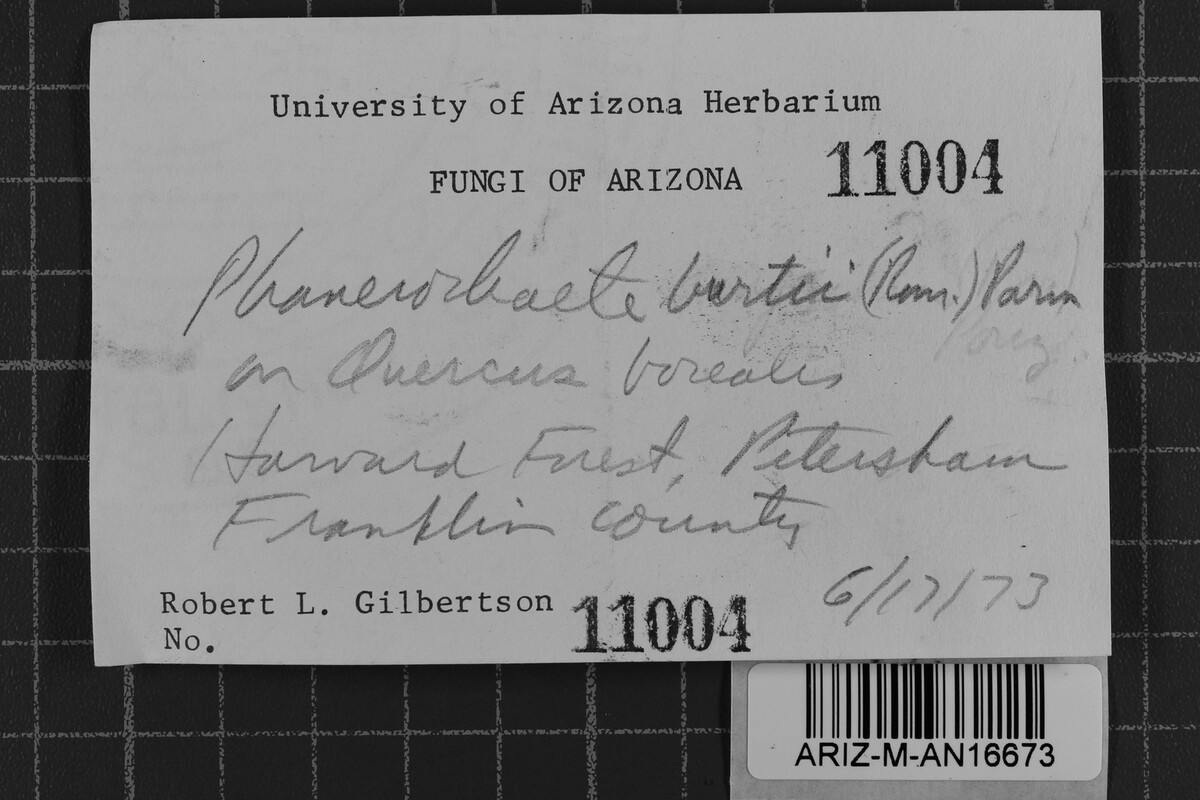 University of Arizona Herbarium
FUNGI OF ARIZONA 11004
Phanerochaete burtii (Rom.) Parm
on Quercus borealis
Harvard Forest, Petersham
Franklin County
6/17/73
Robert L. Gilbertson
No. 11004
ARIZ-M-AN16673